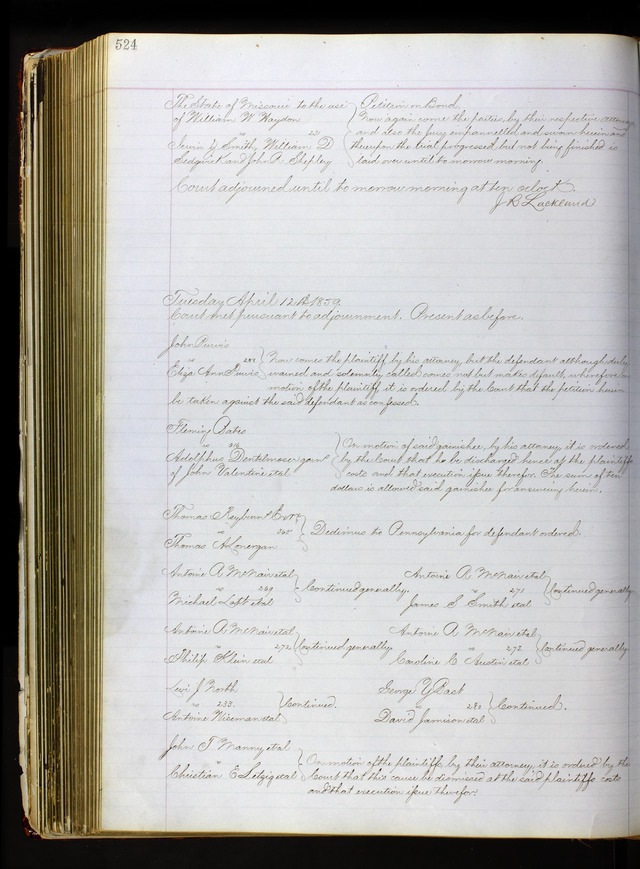 524
The State of Missouri to the use } Petition on Bond.
of William W Waydon } Now again come the parties by their respective attorneys
vs 221 } and also the jury empannelled and sworn herein and
Irwin Y Smith, William D } thereupon the trial progressed but not being finished is
Sedgwick and John A Shepley } laid over until to morrow morning.
Court adjourned until to morrow morning at ten oclock.
J R Lackland
Tuesday April 12th 1859.
Court met pursuant to adjournment. Present as before.
John Purvis
vs } Now comes the plaintiff by his attorney, but the defendant although duly
Eliza Ann Purvis } warned and solemnly called comes not but makes default, wherefore on
motion of the plaintiff it is ordered by the Court that the petition herein
be taken against the said defendant as confessed.
Fleming Bates
vs } On motion of said garnishee, by his attorney, it is ordered
Adolphus garn } by the Court that he be discharged hence at the plaintiffs
of John Valentine etal } costs and that execution issue therefor. The sum of ten
dollars is allowed said garnishee for answering herein.
Thomas Reyburn
vs 265 } Dedimus to Pennsylvania for defendant ordered.
Thomas A Lonergan
Antoine A McNair etal Antoine A McNair etal
vs 269 } Continued generally. vs 271 } Continued generally
Michael Loft etal James S Smith etal
Antoine A McNair etal Antoine A McNair etal
vs 272 } Continued generally vs 272 } Continued generally
Philip Klein etal Caroline C Austin etal
Levi J North George Y Bast
vs 233 } Continued. vs 280 } Continued.
Antoine Wiseman etal David Jamison etal
John T Manny etal
vs } On motion of the plaintiffs by their attorney, it is ordered by the
Christian E etal } Court that this cause be dismissed at the said plaintiffs costs
and that execution issue therefor.